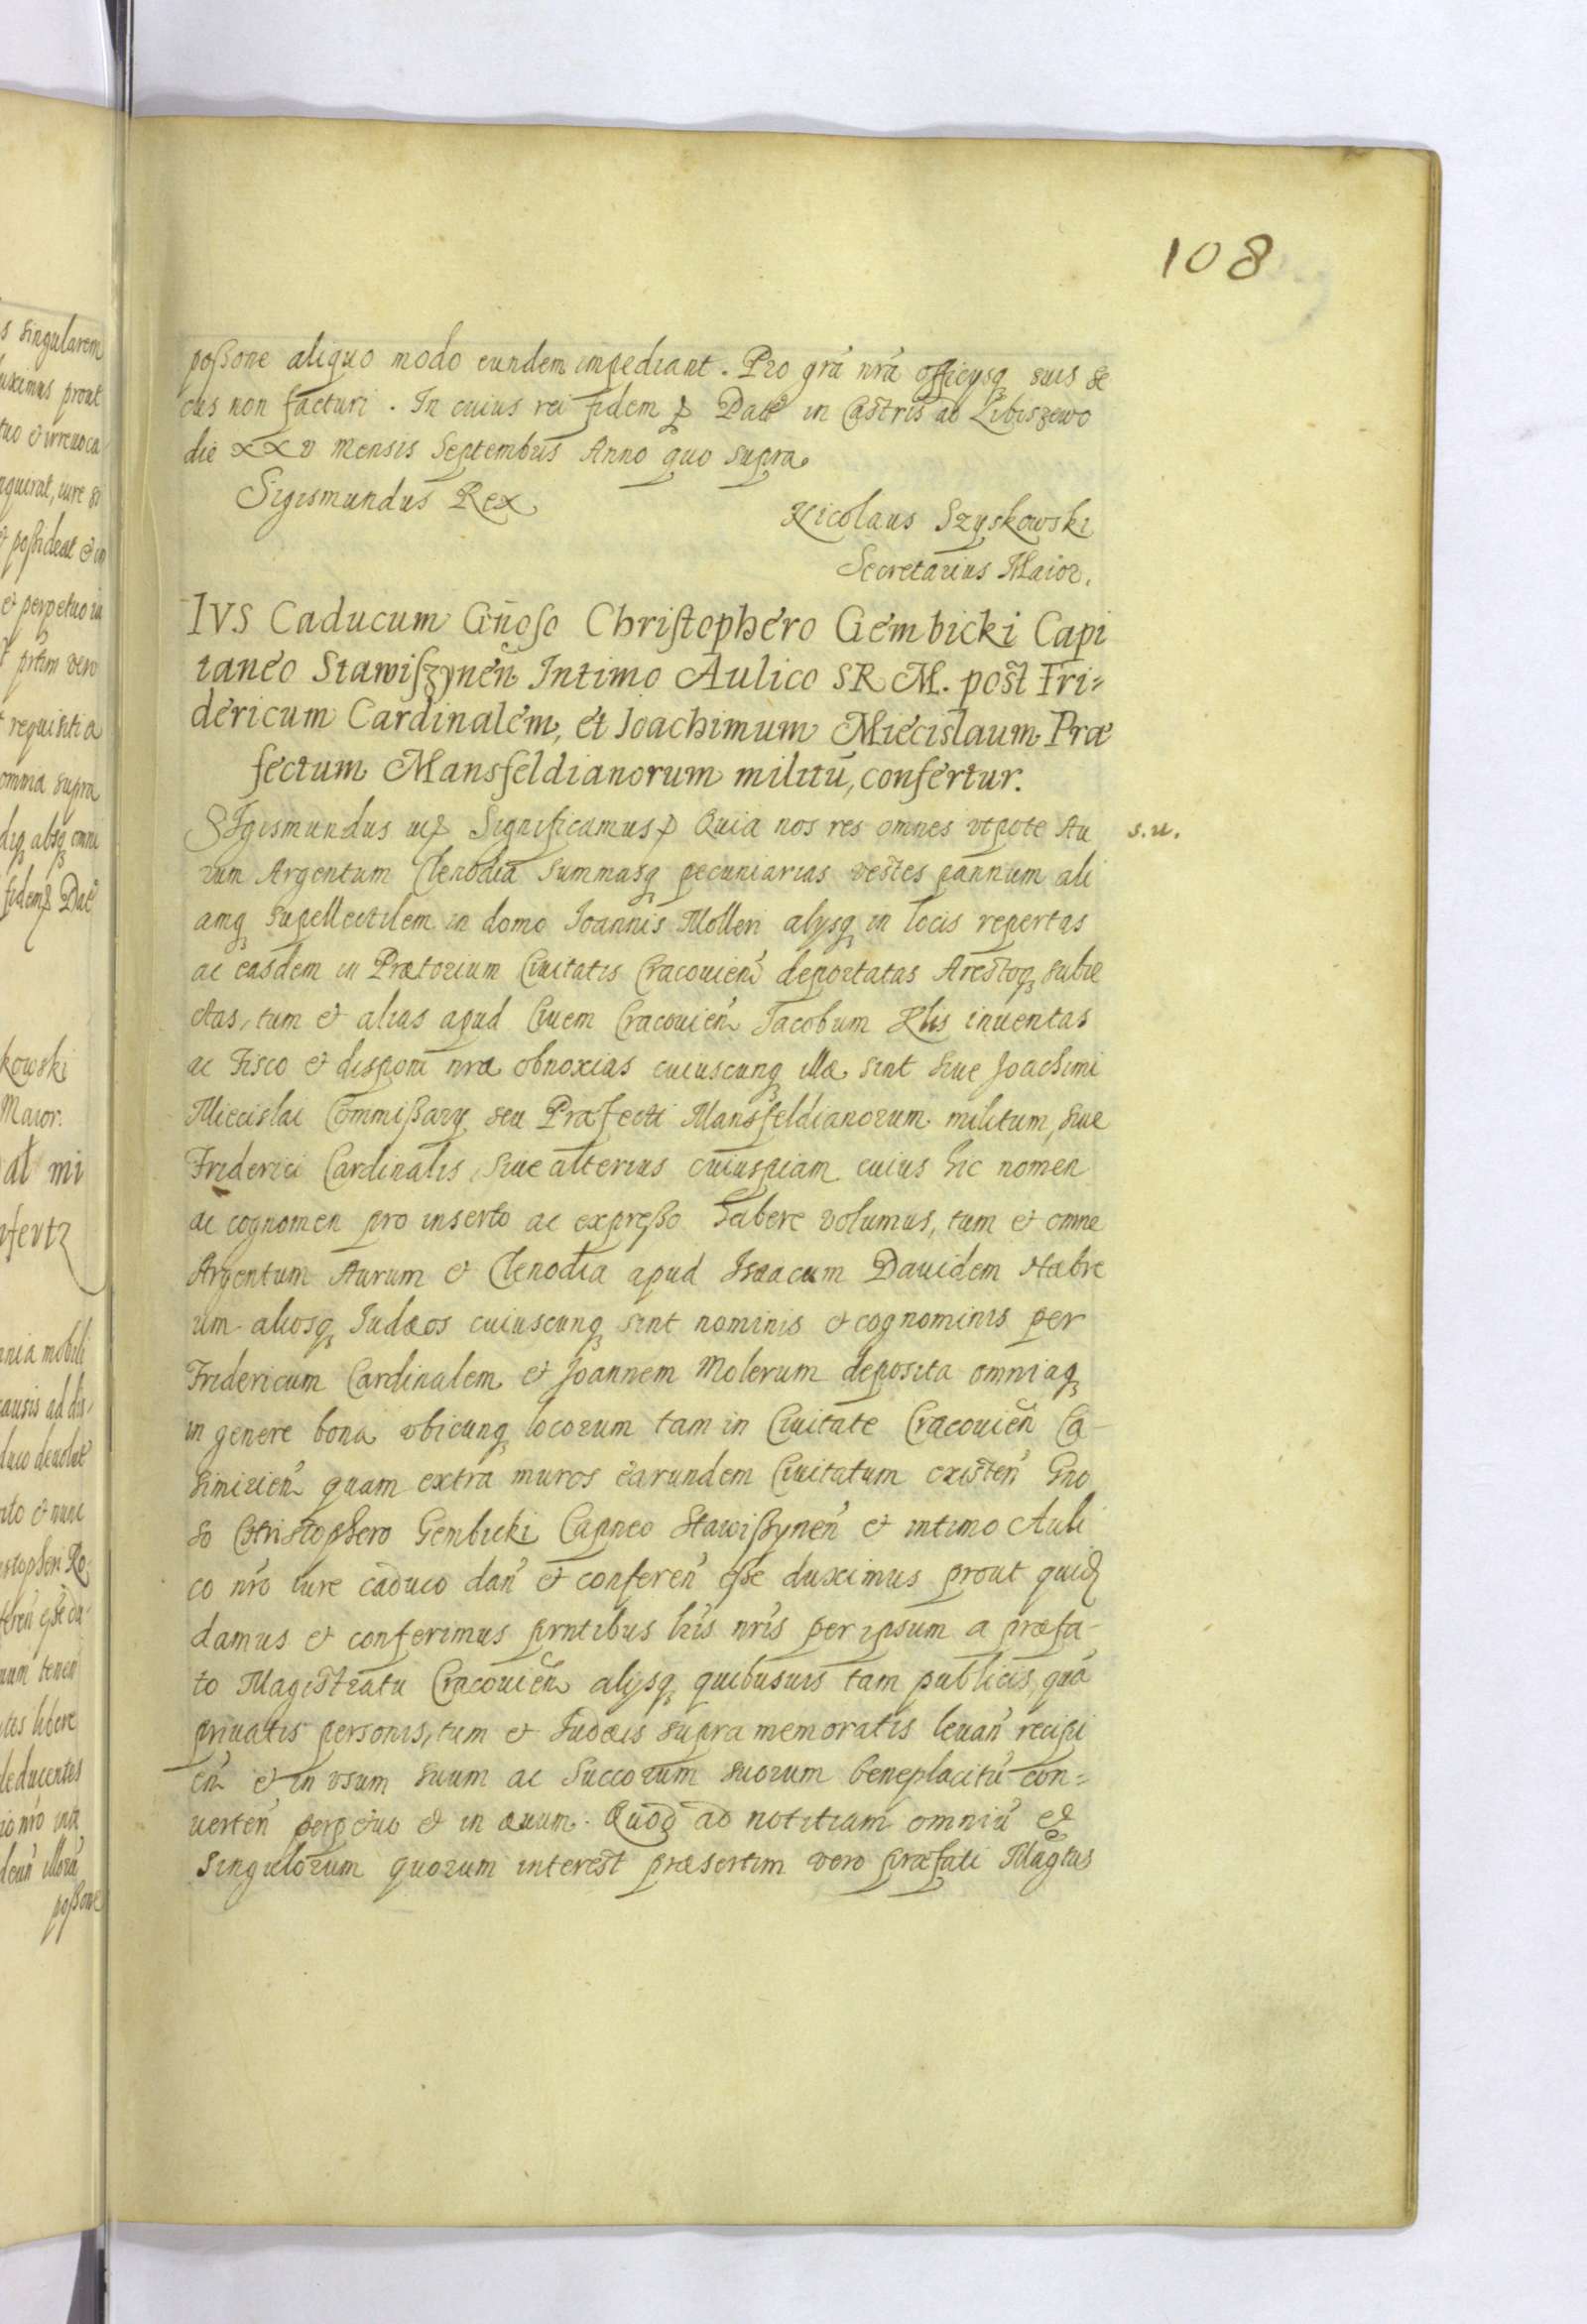 108
poßone aliquo modo eundem impediant. Pro grã nrã officysq suis se
cus non facturi. In cuius rei fidem Dat in Castris ad Libiszewo
die XXV mensis Septembris Anno quo supra
Sigismundus Rex
Nicolaus Szyskowski
Secretarius Maior.
IVS Caducum Gñoso Christophero Gembicki Capi
taneo Stawiszyneñ Intimo Aulico SR M. post Fri=
dericum Cardinalem, et Joachimum Miecislaum Præ
fectum Mansfeldianorum militũ, confertur.
SIgismundus Significamus Quia nos res omnes vtpote Au
s.u.
rum Argentum Clenodia summasq pecuniarias vestes pannum ali
amq supellectilem in domo Joannis Molleri alysq in locis repertas
ac easdem in Prætorium Ciuitatis Cracouieñ deportatas Arestoq subie
ctas, tum et alias apud Ciuem Cracouieñ Jacobum inuentas
ac Fisco et disponi nræ obnoxias cuiuscunq illæ sint siue Joachimi
Miecislai Commißary seu Præfecti Mansfeldianorum militum, siue
Friderici Cardinalis, siue alterius cuiuspiam cuius hic nomen
ac cognomen pro inserto ac expreßo habere volumus, tum et omne
Argentum Aurum et Clenodia apud Isaacum Dauidem Hæbre
um aliosq Judæos cuiuscunq sint nominis et cognominis per
Fridericum Cardinalem et Joannem Molerum deposita omniaq
in genere bona vbicunq locorum tam in Ciuitate Cracouieñ Ca-
simirieñ quam extra muros earundem Ciuitatum existeñ Gno
so Christophero Gembicki Capneo Stawißyneñ et intimo Auli
co nro iure caduco dañ et confereñ eße duximus prout quid
damus et conferimus prntibus lris nris per ipsum a præfa-
to Magistratu Cracouieñ alysq quibusuis tam publicis, quã
priuatis personis, tum et Judæis supra memoratis leuañ recipi
eñ et in vsum suum ac Succorum suorum beneplacitũ con=
uerteñ perpetuo et in æuum. Quod ad notitiam omniũ et
singulorum quorum interest præsertim vero præfati Magtus